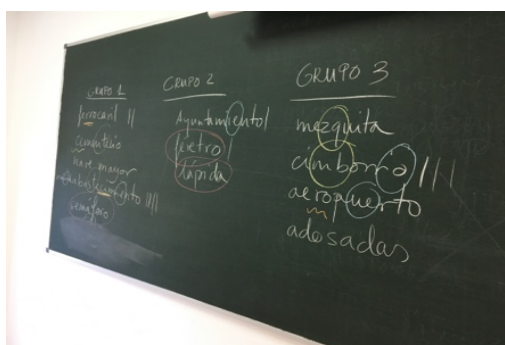 GRUPO 1
ferrocaril ||
nave mayor
semáforo
GRUPO 2
Ayuntamiento |
féretro |
lápida
GRUPO 3
mezquita
cimborrio |||
aeropuerto
adosadas